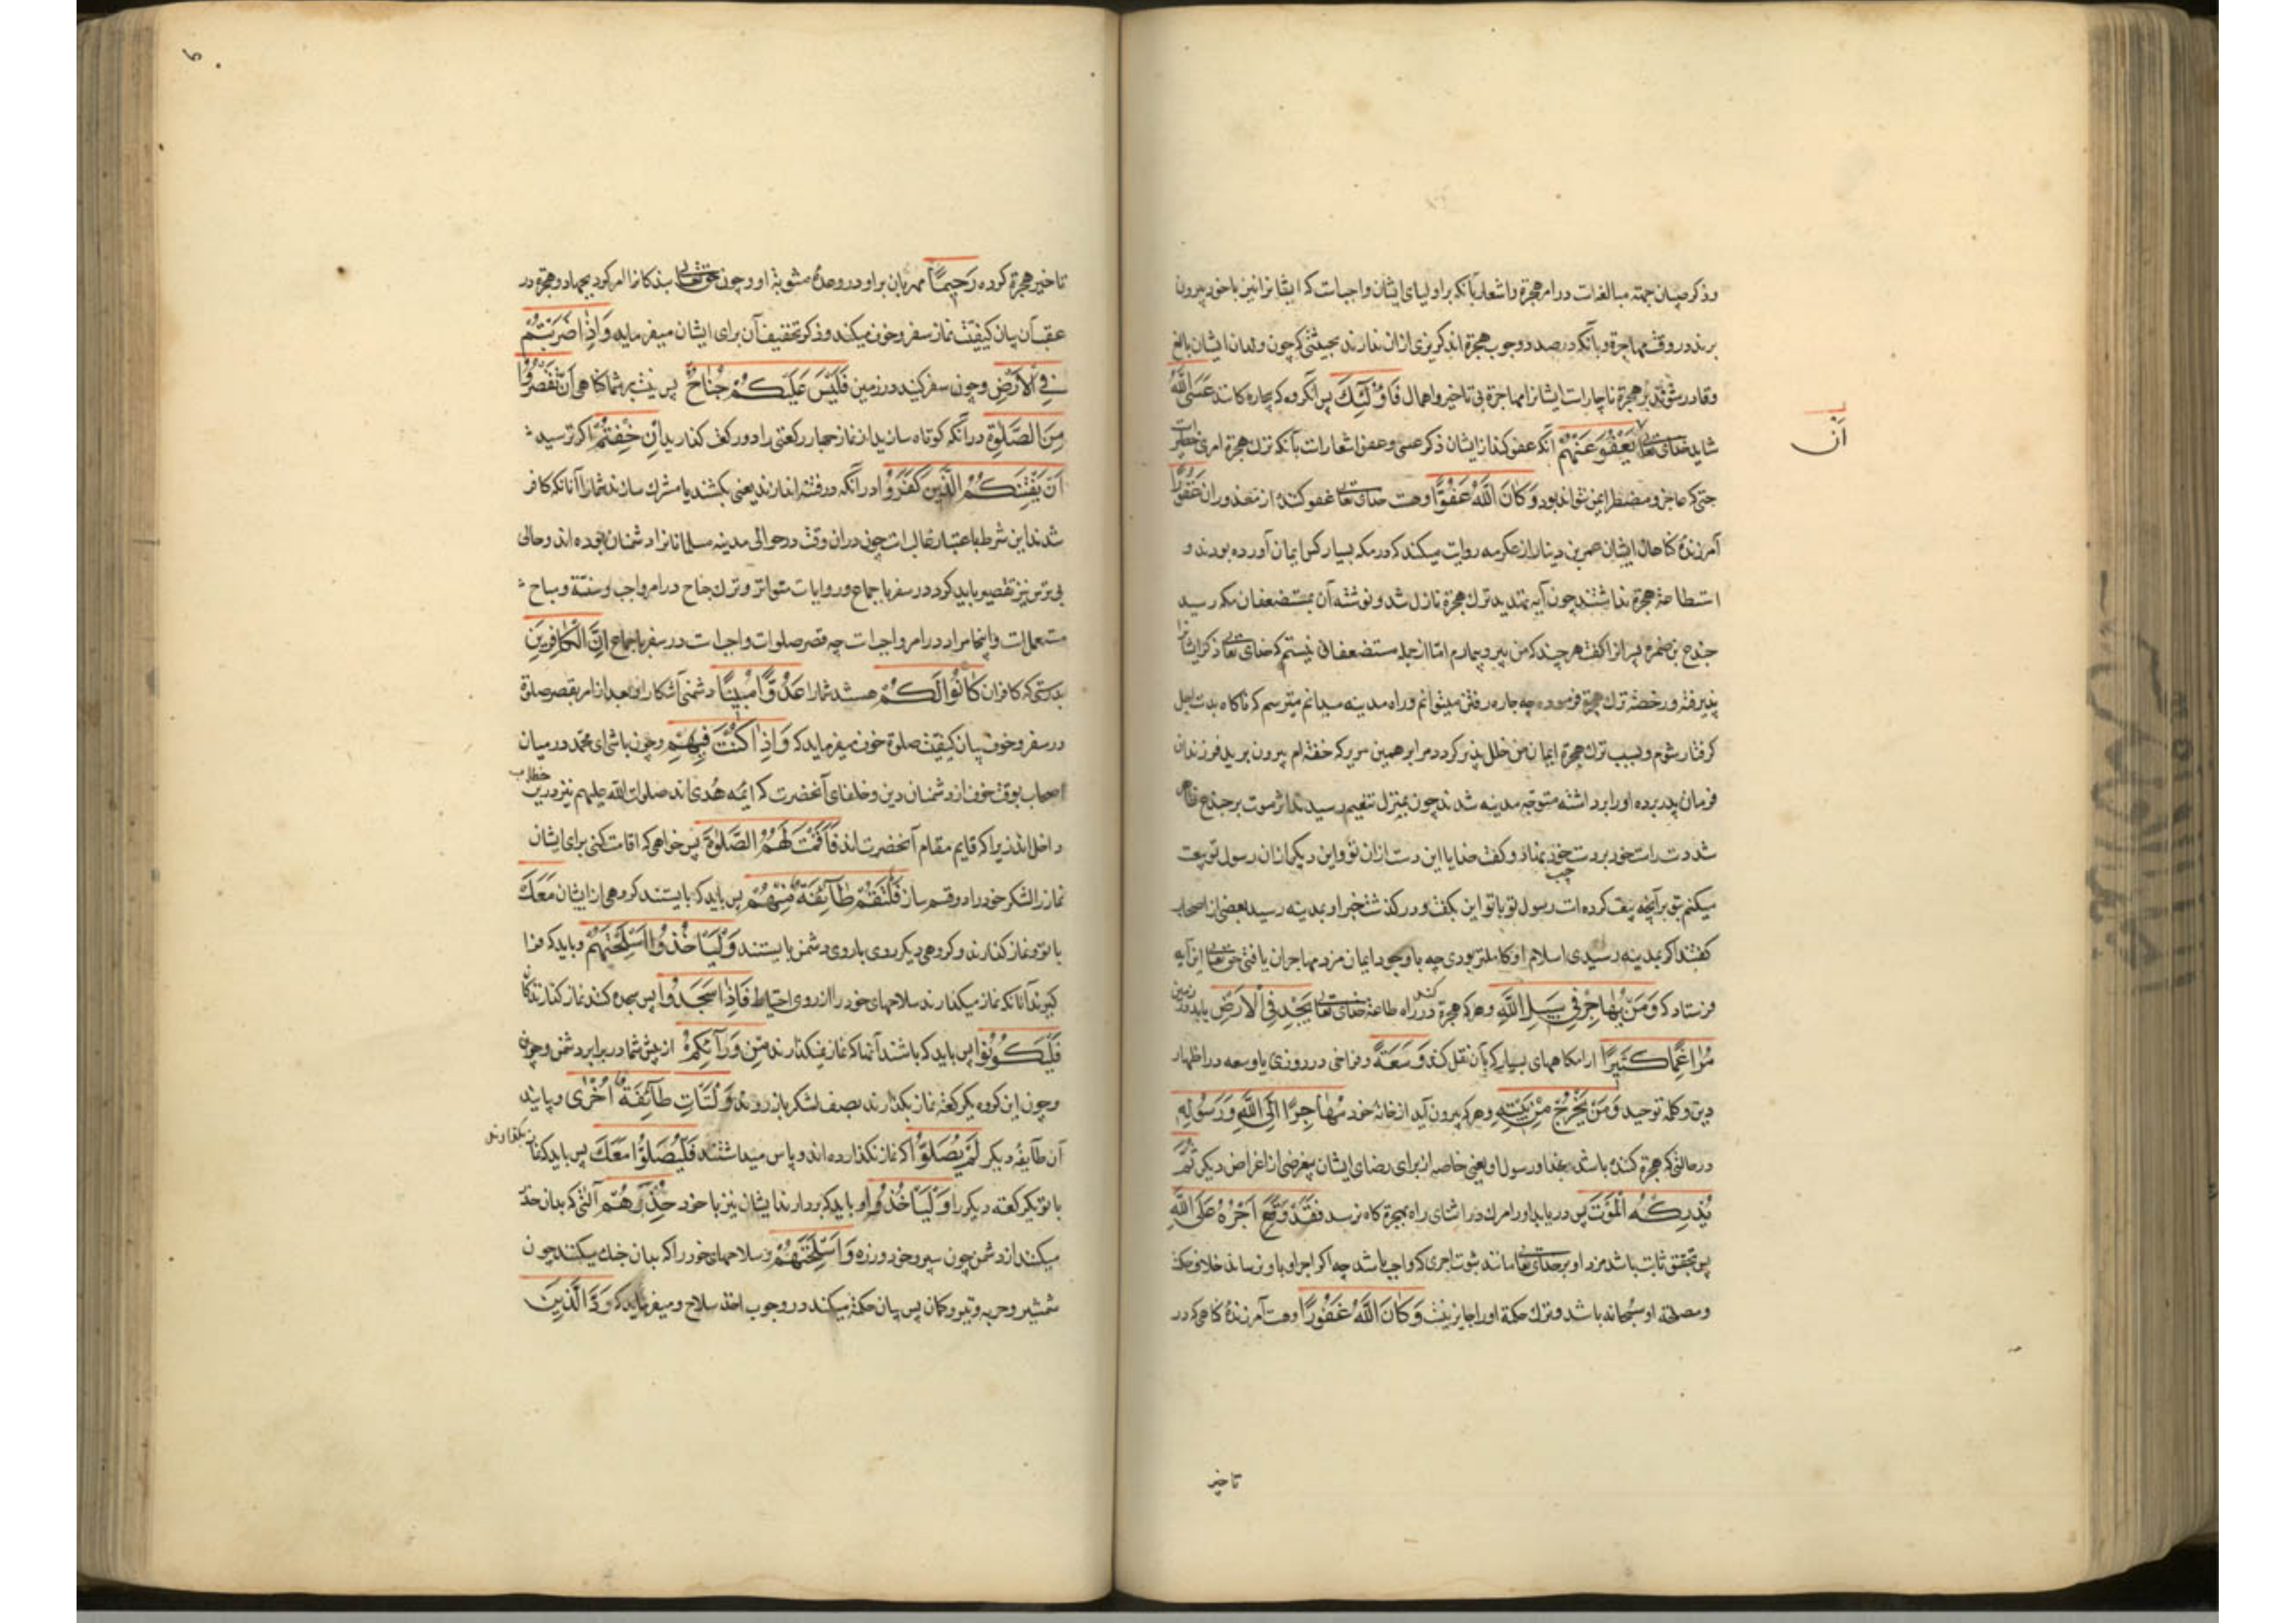 وذکر صبیان جهته مبالغه‌است در امر هجرة واشعار بآنکه بر اولیای ایشان واجبست که ایشانرا نیز با خود بیرون
برند در وقت مهاجرة وبآنکه در صدد وجوب هجرة اند کریزی از ان ندارند بحیثیتی که چون ولدان ایشان بالغ
وقادر شوند بر هجرة ناچارست ایشانرا مهاجرة بی تاخیر واهمال فَاُولٰئِكَ پس آنکروه که بیچاره کانند عَسَی اللّٰهُ
اَن
شاید خدای تعالی یَعْفُوَ عَنْهُمْ آنکه عفو کند از ایشان ذکر عسی وعفو اشعارست بآنکه ترك هجرة امری خطیر است
حتی که عاجز ومضطر ایمن نتواند بود وَكَانَ اللّٰهُ عَفُوًّا وهست خدای تعالی عفو کننده از معذوران غَفُورًا
آمرزندهٔ کناهان ایشان عمر بن دینار از عکرمه روایت میکند که در مکه بسیار کس ایمان آورده بودند و
استطاعة هجرة نداشتند چون آیه تهدید ترك هجرة نازل شد ونوشته آن بمستضعفان مکه رسید
جندع بن ضمره پسرانرا کفت هر چند که من پیر وبیمارم امّا از جمله مستضعفان نیستم که خدای تعالی ذکر ایشانرا
پذیرفته ورخصة ترك هجرة فرموده چه چاره رفتن میتوانم وراه مدینه میدانم میترسم که ناکاه بدست اجل
کرفتار شوم وبسبب ترك هجرة ایمان من خلل پذیر کردد مرا بر همین سریر که خفته ام بیرون برید فرزندان
فرمان پدر برده اورا برداشته متوجه مدینه شدند چون بمنزل تنعیم رسیدند اثر موت بر جندع ظاهر
شد دست راست خود بر دست چپ خود نهاد وکفت خدایا این دست از ان تو واین دیکر از ان رسول تو بیعت
میکنم بتو بر آنچه بیعت کرده است رسول تو با تو این بکفت ودر کذشت خبر او بمدینه رسید بعضی از اصحاب
کفتند اکر بمدینه رسیدی اسلام او کاملتر بودی چه با وجود ایمان مزد مهاجران یافتی حق تعالی این آیه
فرستاد که وَمَنْ یُهَاجِرْ فِی سَبِیلِ اللّٰهِ وهر که هجرة کند در راه طاعة خدای تعالی یَجِدْ فِی الْاَرْضِ یابد در زمین
مُرَاغَمًا كَثِیرًا ارامکاههای بسیار که بآن نقل کند وَسَعَةً وفراخی در روزی یا وسعه در اظهار
دین وکلمه توحید وَمَنْ یَخْرُجْ مِنْ بَیْتِهِ وهر که بیرون آید از خانه خود مُهَاجِرًا اِلَی اللّٰهِ وَرَسُولِهِ
در حالتی که هجرة کننده باشد بخدا ورسول او یعنی خاصه از برای رضای ایشان بیغرضی از اغراض دیکر ثُمَّ
یُدْرِكْهُ الْمَوْتُ پس دریابد اورا مرك در اثنای راه بهجرة کاه نرسد فَقَدْ وَقَعَ اَجْرُهُ عَلَی اللّٰهِ
پس بتحقیق ثابت باشد مزد او بر خدای تعالی مانند ثبوت اجری که واجب باشد چه اکر اجر او باو نرساند خلاف حکمة
ومصلحة او سبحانه باشد وترك حکمة اورا جایز نیست وَكَانَ اللّٰهُ غَفُورًا وهست آمرزندهٔ کناهی که در
تاخیر
تاخیر هجرة کرده رَحِیمًا مهربان براو در وعدهٔ مثوبة او وچون حق تعالی بندکانرا امر کرد بجهاد وهجرة در
عقب آن بیان کیفیّت نماز سفر وخوف میکند وذکر تخفیف آن برای ایشان میفرماید وَاِذَا ضَرَبْتُمْ
فِی الْاَرْضِ وچون سفر کنید در زمین فَلَیْسَ عَلَیْكُمْ جُنَاحٌ پس نیست بر شما کناهی اَنْ تَقْصُرُوا
مِنَ الصَّلٰوةِ در آنکه کوتاه سازید از نماز چهار رکعتی را دو رکعت کذارید اِنْ خِفْتُمْ اکر ترسید
اَنْ یَفْتِنَكُمُ الَّذِینَ كَفَرُوا در آنکه در فتنه اندازند یعنی بکشند یا مشرك سازند شمارا آنانکه کافر
شدند این شرط باعتبار غالبست چون در ان وقت در حوالی مدینه مسلمانانرا دشمنان بوده اند وحالی
بی ترس نیز تقصیر باید کرد در سفر باجماع وروایات متواتر وترك جناح در امر واجب وسنة ومباح
مستعملست واینجا مراد در امر واجبست چه قصر صلوات واجبست در سفر باجماع اِنَّ الْكَافِرِینَ
بدرستی که کافران كَانُوا لَكُمْ هستند شمارا عَدُوًّا مُبِینًا دشمنی آشکارا وبعد از امر بقصر صلوة
در سفر وخوف بیان کیفیّت صلوة خوف میفرماید که وَاِذَا كُنْتَ فِیهِمْ وچون باشی ای محمّد در میان
اصحاب بوقت خوف از دشمنان دین وخلفای آنحضرت که ایمه هُدی اند صلوات اللّه علیهم نیز درین خطاب
داخل اند زیرا که قایم مقام آنحضرت اند فَاَقَمْتَ لَهُمُ الصَّلٰوةَ پس خواهی که اقامت کنی برای ایشان
نماز را لشکر خود را دو قسم ساز فَلْتَقُمْ طَآئِفَةٌ مِنْهُمْ پس باید که بایستند کروهی از ایشان مَعَكَ
با تو ونماز کذارند وکروهی دیکر روی باروی دشمن بایستند وَلْیَاْخُذُوا اَسْلِحَتَهُمْ وباید که فرا
کیرند آنانکه نماز میکذارند سلاحهای خود را از روی احتیاط فَاِذَا سَجَدُوا پس سجده کنند نماز کذارندکان
فَلْیَكُونُوا پس باید که باشند آنها که نماز نمیکذارند مِنْ وَرَآئِكُمْ از پیش شما در برابر دشمن
وچون این کروه یکرکعة نماز بکذارند بصف لشکر باز روند وَلْتَاْتِ طَآئِفَةٌ اُخْرٰی وبیایند
آن طایفهٔ دیکر لَمْ یُصَلُّوا که نماز نکذارده اند وپاس میداشتند فَلْیُصَلُّوا مَعَكَ پس باید که نماز بکذارند
با تو یکرکعة دیکر را وَلْیَاْخُذُوا وباید که بردارند ایشان نیز با خود حِذْرَهُمْ آلتی که بدان حذر
میکنند از دشمن چون سپر وخود وزره وَاَسْلِحَتَهُمْ وسلاحهای خود را که بدان جنك میکنند چون
شمشیر وحربه وتیر وکمان پس بیان حکمة میکند در وجوب اخذ سلاح ومیفرماید که وَدَّ الَّذِینَ